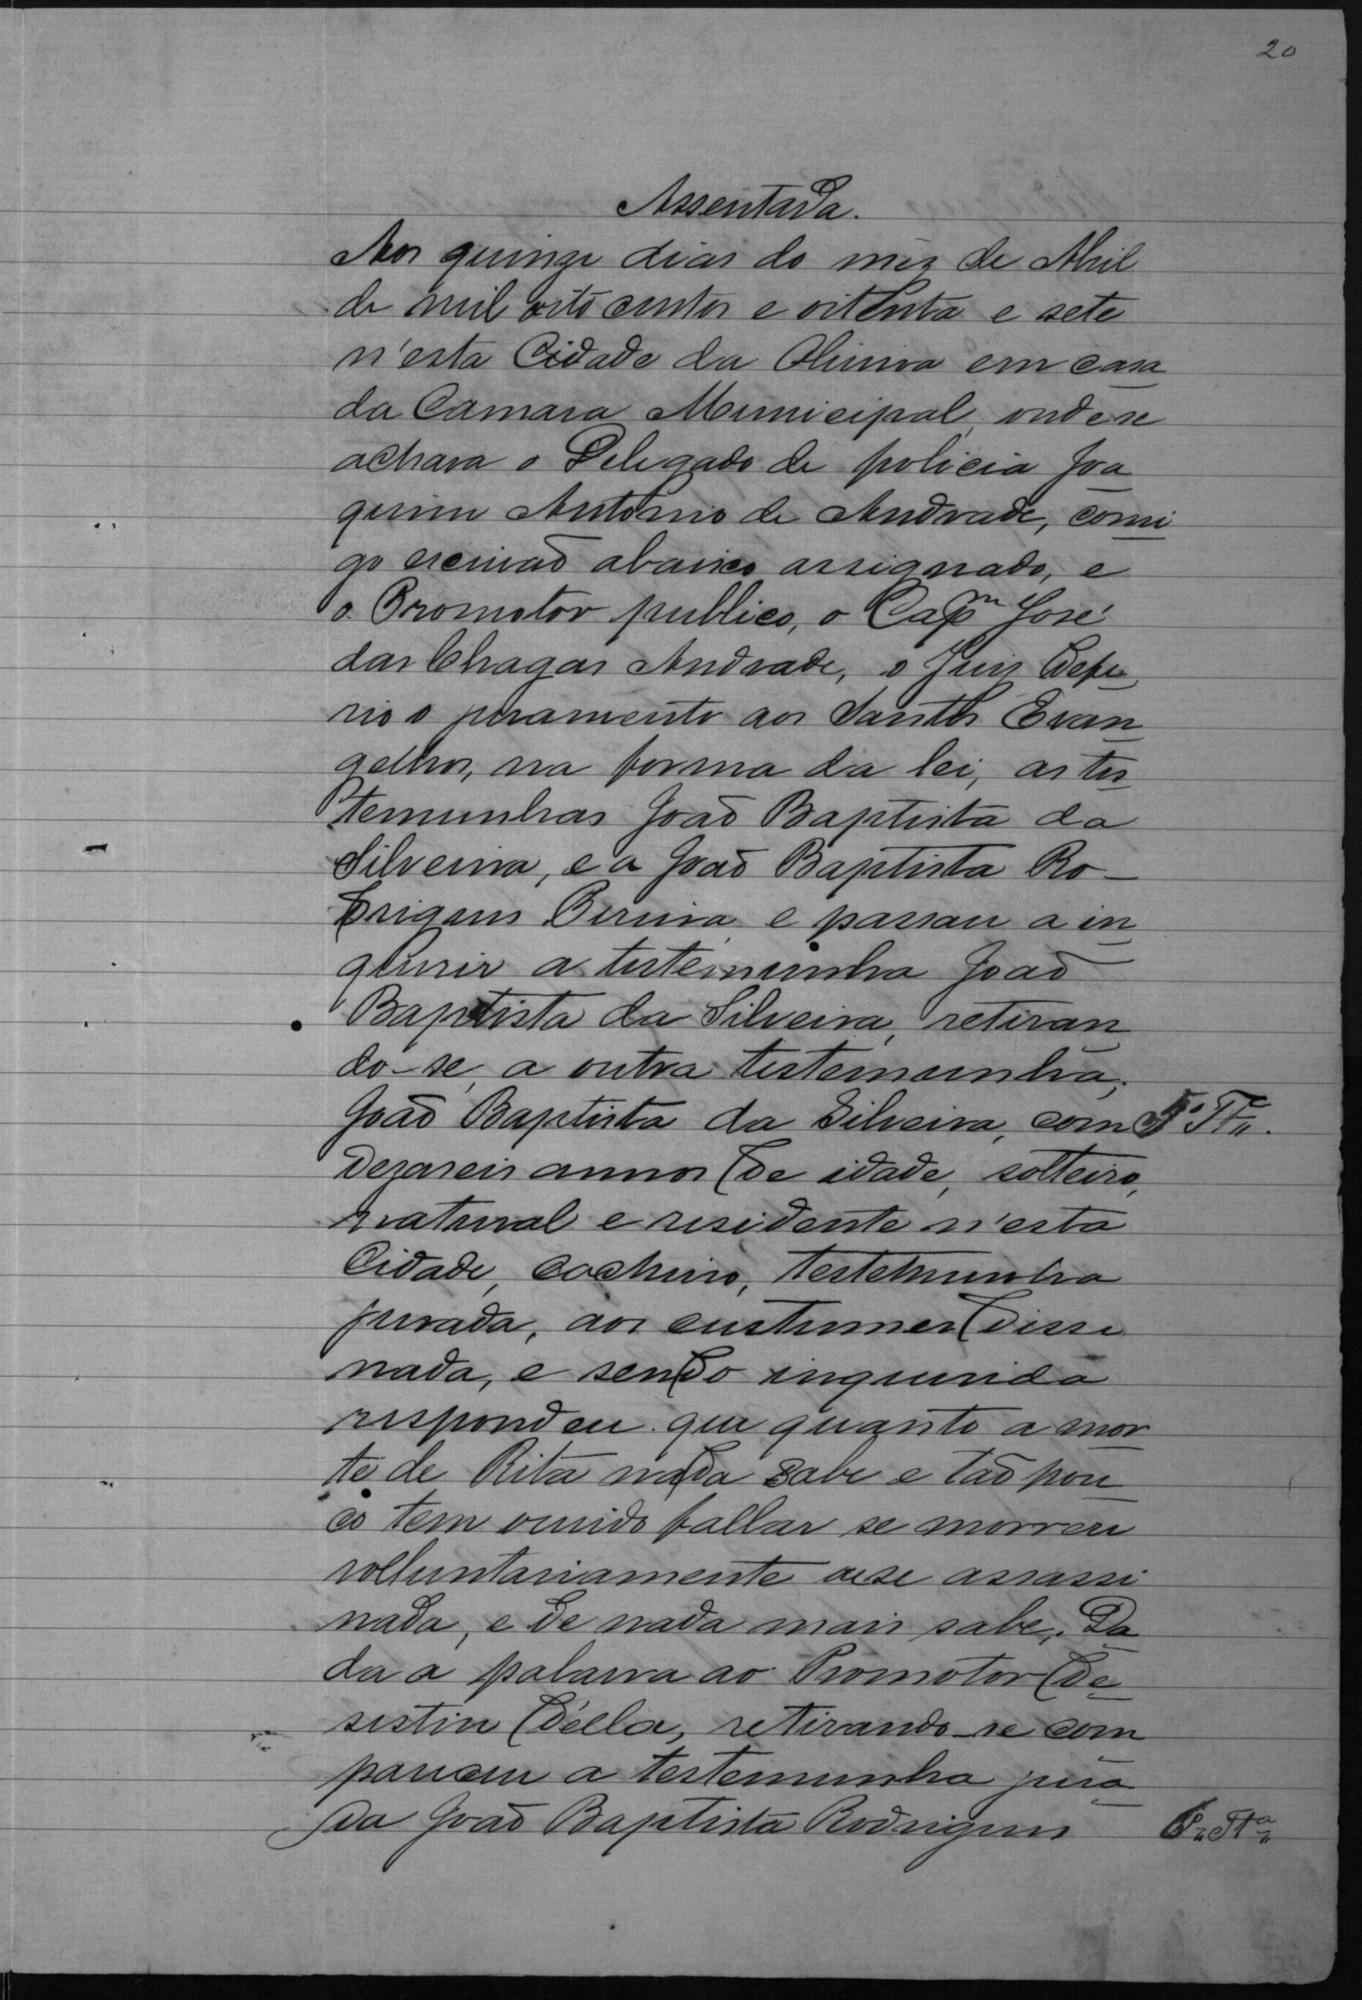 20
Assentada.
Aos quinze dias do mez de Abril
de mil oito centos e oitenta e sete
n'esta Cidade da Oliveira em casa
da Camara Municipal, onde se
achava o Delegado de policia Joa
quim Antonio de Andrade, comi
go escrivaõ abaixo assignado, e
o Promotor publico, o Capm José
das Chagas Andrade, o Juiz defe
rio o juramento aos Santos Evan
gelhos, na forma da lei, as tes
temunhas Joaõ Baptista da
Silveira, e a Joaõ Baptista Ro-
drigues Pereira e passou a in
quirir a testemunha Joaõ
Baptista da Silveira, retiran
do-se a outra testemunha.
Joaõ Baptista da Silveira, com 5ª Tª.
dezaseis annos de idade, solteiro,
natural e residente n'esta
Cidade, cocheiro, testemunha
jurada, aos custumes disse
nada, e sendo inquirida
respondeu que quanto a mor
te de Rita nada sabe e taõ pou
co tem ouvido fallar se morreu
volluntariamente ou se assassi
nada, e de nada mais sabe. Da
da a palavra ao Promotor de
sistiu d'ella, retirando-se com
pareceu a testemunha jura
da Joaõ Baptista Rodrigues 6ª Tª